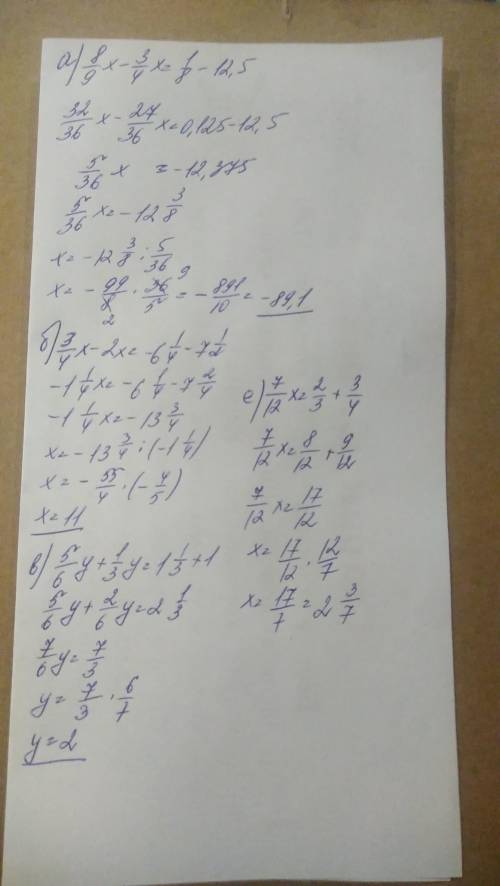 а) 8/9 x - 3/4 x = 1/8 - 12,5
32/36 x - 27/36 x = 0,125 - 12,5
5/36 x = -12,375
5/36 x = -12 3/8
x = -12 3/8 : 5/36
x = - 99/8 · 36/5 = - 891/10 = -89,1
2 9
б) 3/4 x - 2x = -6 1/4 - 7 1/2
-1 1/4 x = -6 1/4 - 7 2/4
-1 1/4 x = -13 3/4
x = -13 3/4 : (-1 1/4)
x = - 55/4 · (- 4/5)
x = 11
в) 5/6 y + 1/3 y = 1 1/3 + 1
5/6 y + 2/6 y = 2 1/3
7/6 y = 7/3
y = 7/3 · 6/7
y = 2
е) 7/12 x = 2/3 + 3/4
7/12 x = 8/12 + 9/12
7/12 x = 17/12
x = 17/12 · 12/7
x = 17/7 = 2 3/7